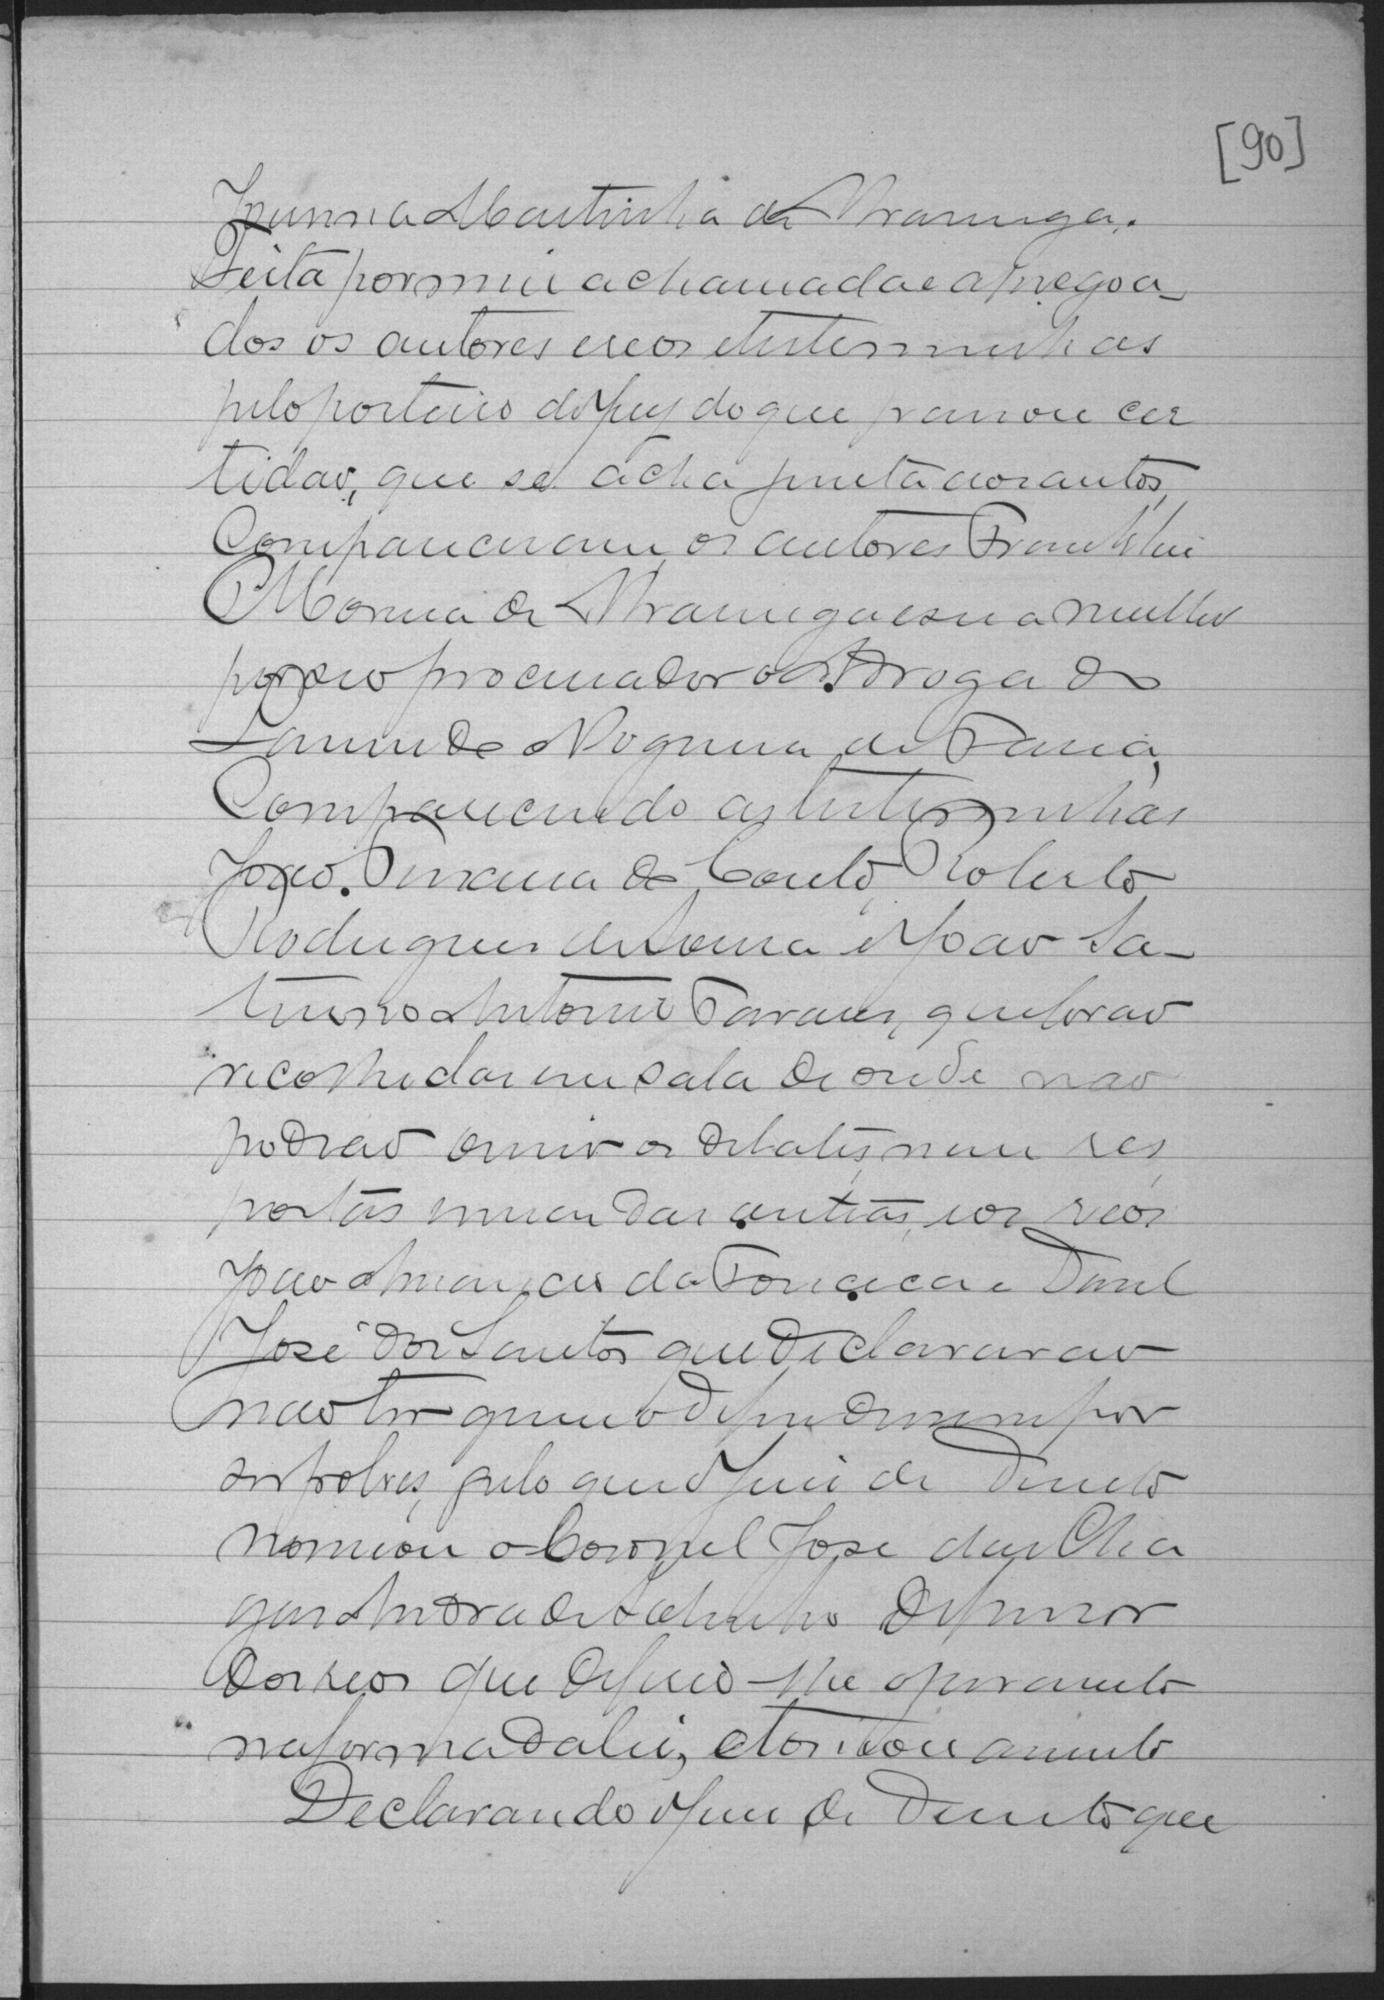 [90]
Martinha de Alvarenga.
Feita por mim a chamada e apregoa-
dos os autores e reos e testemunhas
pelo porteiro do Jury do que passou cer
tidao, que se acha junta aos autos,
Compareceram os autores Franklin
Maria de Alvarenga e sua mulher
por seo procurador o
Nogueira de Faria,
Comparecendo as testemunhas
Joao Pereira do Couto, Roberto
Rodrigues de Sousa e Joao Sa-
turno Antonio Tavares, que forao
recolhidas em sala de onde nao
podiao ouvir os debates, nem res
postas umas das outras, e os reos
Joao da Fonceca e Daniel
José dos Santos que declararao
nao ter quem o defendessem por
ser pobres, pelo que o Juiz de Direito
nomeou o Coronel Jose das Cha
gas Andrade Sobrinho defensor
dos reos que deferio-lhe o juramento
na forma da lei, e tomou acento
Declarando o Juiz de Direito que